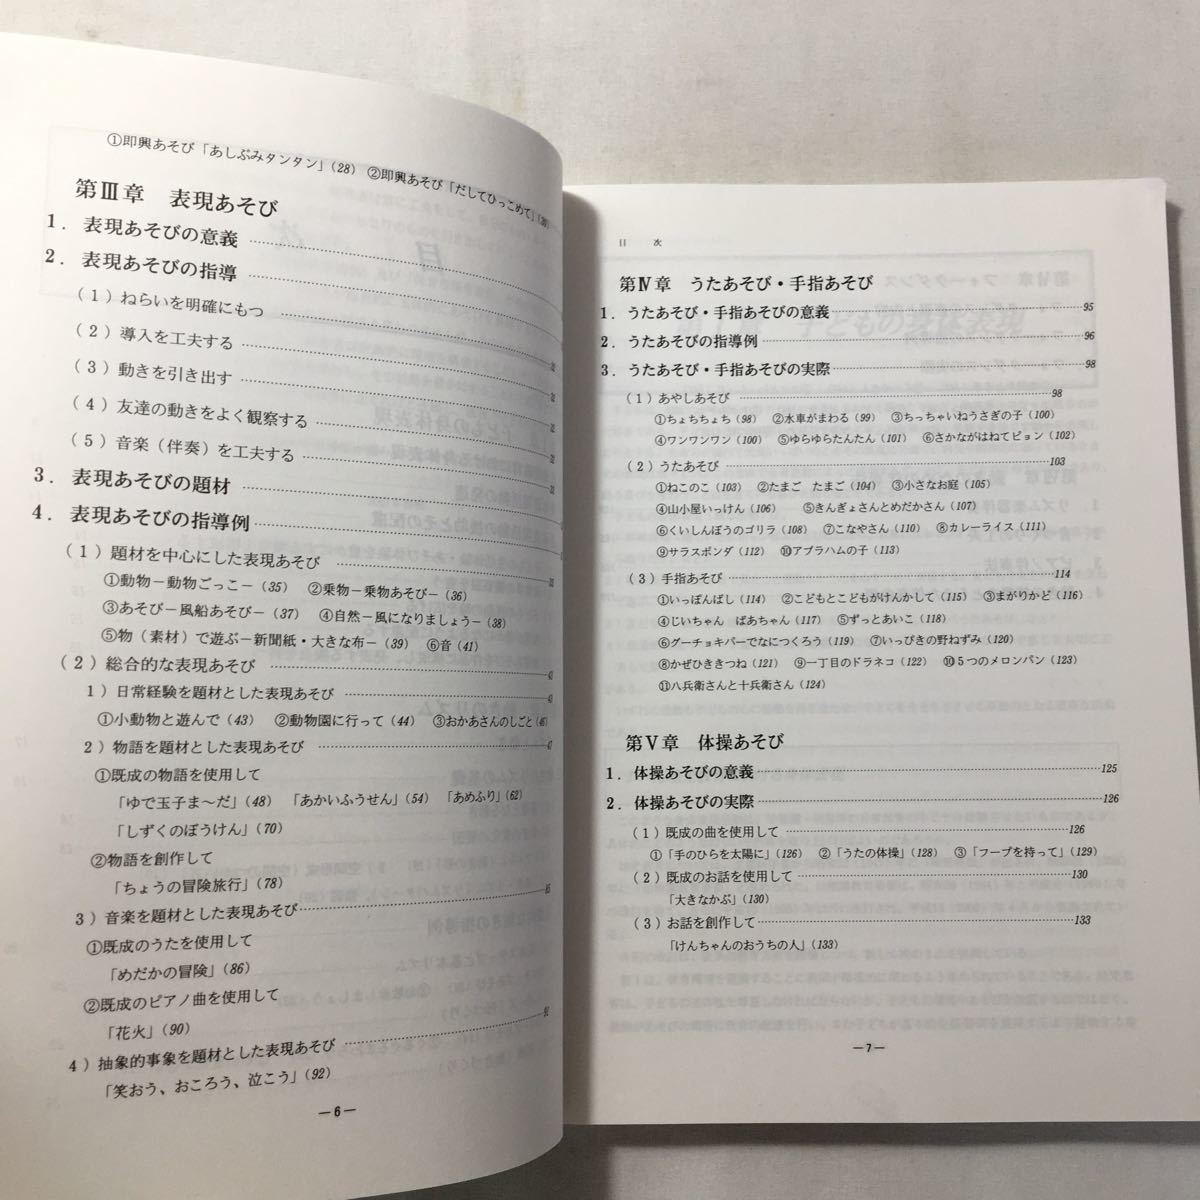 ①即興あそび「あしぶみタンタン」(28) ②即興あそび「だしてひっこめて」(30)
第Ⅲ章 表現あそび
1. 表現あそびの意義
2. 表現あそびの指導
(1)ねらいを明確にもつ
(2)導入を工夫する 32
(3)動きを引き出す 32
(4)友達の動きをよく観察する 32
(5)音楽(伴奏)を工夫する 32
3. 表現あそびの題材
4. 表現あそびの指導例
(1)題材を中心にした表現あそび 35
①動物−動物ごっこ−(35) ②乗物−乗物あそび−(36)
③あそび−風船あそび−(37) ④自然−風になりましょう−(38)
⑤物(素材)で遊ぶ−新聞紙・大きな布−(39) ⑥音(41)
(2)総合的な表現あそび 43
1)日常経験を題材とした表現あそび 43
①小動物と遊んで(43) ②動物園に行って(44) ③おかあさんのしごと(46)
2)物語を題材とした表現あそび 47
①既成の物語を使用して
「ゆで玉子ま〜だ」(48) 「あかいふうせん」(54) 「あめふり」(62)
「しずくのぼうけん」(70)
②物語を創作して
「ちょうの冒険旅行」(78)
3)音楽を題材とした表現あそび 85
①既成のうたを使用して
「めだかの冒険」(86)
②既成のピアノ曲を使用して
「花火」(90)
4)抽象的事象を題材とした表現あそび 92
「笑おう、おころう、泣こう」(92)
—6—
目 次
第Ⅳ章 うたあそび・手指あそび
1. うたあそび・手指あそびの意義 95
2. うたあそびの指導例 96
3. うたあそび・手指あそびの実際 98
(1)あやしあそび 98
①ちょちちょち(98) ②水車がまわる(99) ③ちっちゃいねうさぎの子(100)
④ワンワンワン(100) ⑤ゆらゆらたんたん(101) ⑥さかながはねてピョン(102)
(2)うたあそび 103
①ねこのこ(103) ②たまご たまご(104) ③小さなお庭(105)
④山小屋いっけん(106) ⑤きんぎょさんとめだかさん(107)
⑥くいしんぼうのゴリラ(108) ⑦こなやさん(110) ⑧カレーライス(111)
⑨サラスポンダ(112) ⑩アブラハムの子(113)
(3)手指あそび 114
①いっぽんばし(114) ②こどもとこどもがけんかして(115) ③まがりかど(116)
④じいちゃん ばあちゃん(117) ⑤ずっとあいこ(118)
⑥グーチョキパーでなにつくろう(119) ⑦いっぴきの野ねずみ(120)
⑧かぜひききつね(121) ⑨一丁目のドラネコ(122) ⑩5つのメロンパン(123)
⑪八兵衛さんと十兵衛さん(124)
第Ⅴ章 体操あそび
1. 体操あそびの意義 125
2. 体操あそびの実際 126
(1)既成の曲を使用して 126
①「手のひらを太陽に」(126) ②「うたの体操」(128) ③「フープを持って」(129)
(2)既成のお話を使用して 130
「大きなかぶ」(130)
(3)お話を創作して 133
「けんちゃんのおうちの人」(133)
—7—